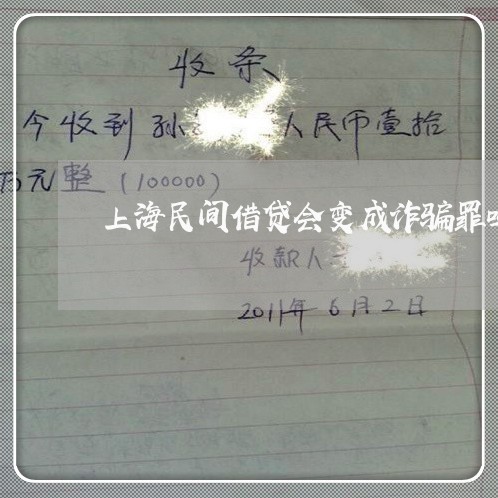 收条
今收到孙 人民币壹拾
万元整（100000）
上海民间借贷会变成诈骗罪吗
收款人
2011年6月2日